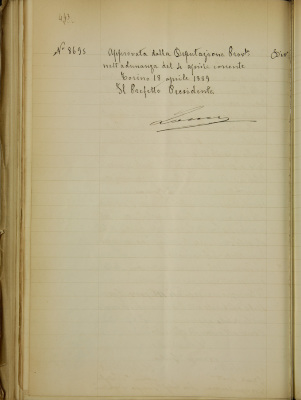 N° 8695 Approvata dalla Deputazione Prov.le
nell'adunanza del 4 aprile corrente
Torino 18 aprile 1889
Il Prefetto Presidente